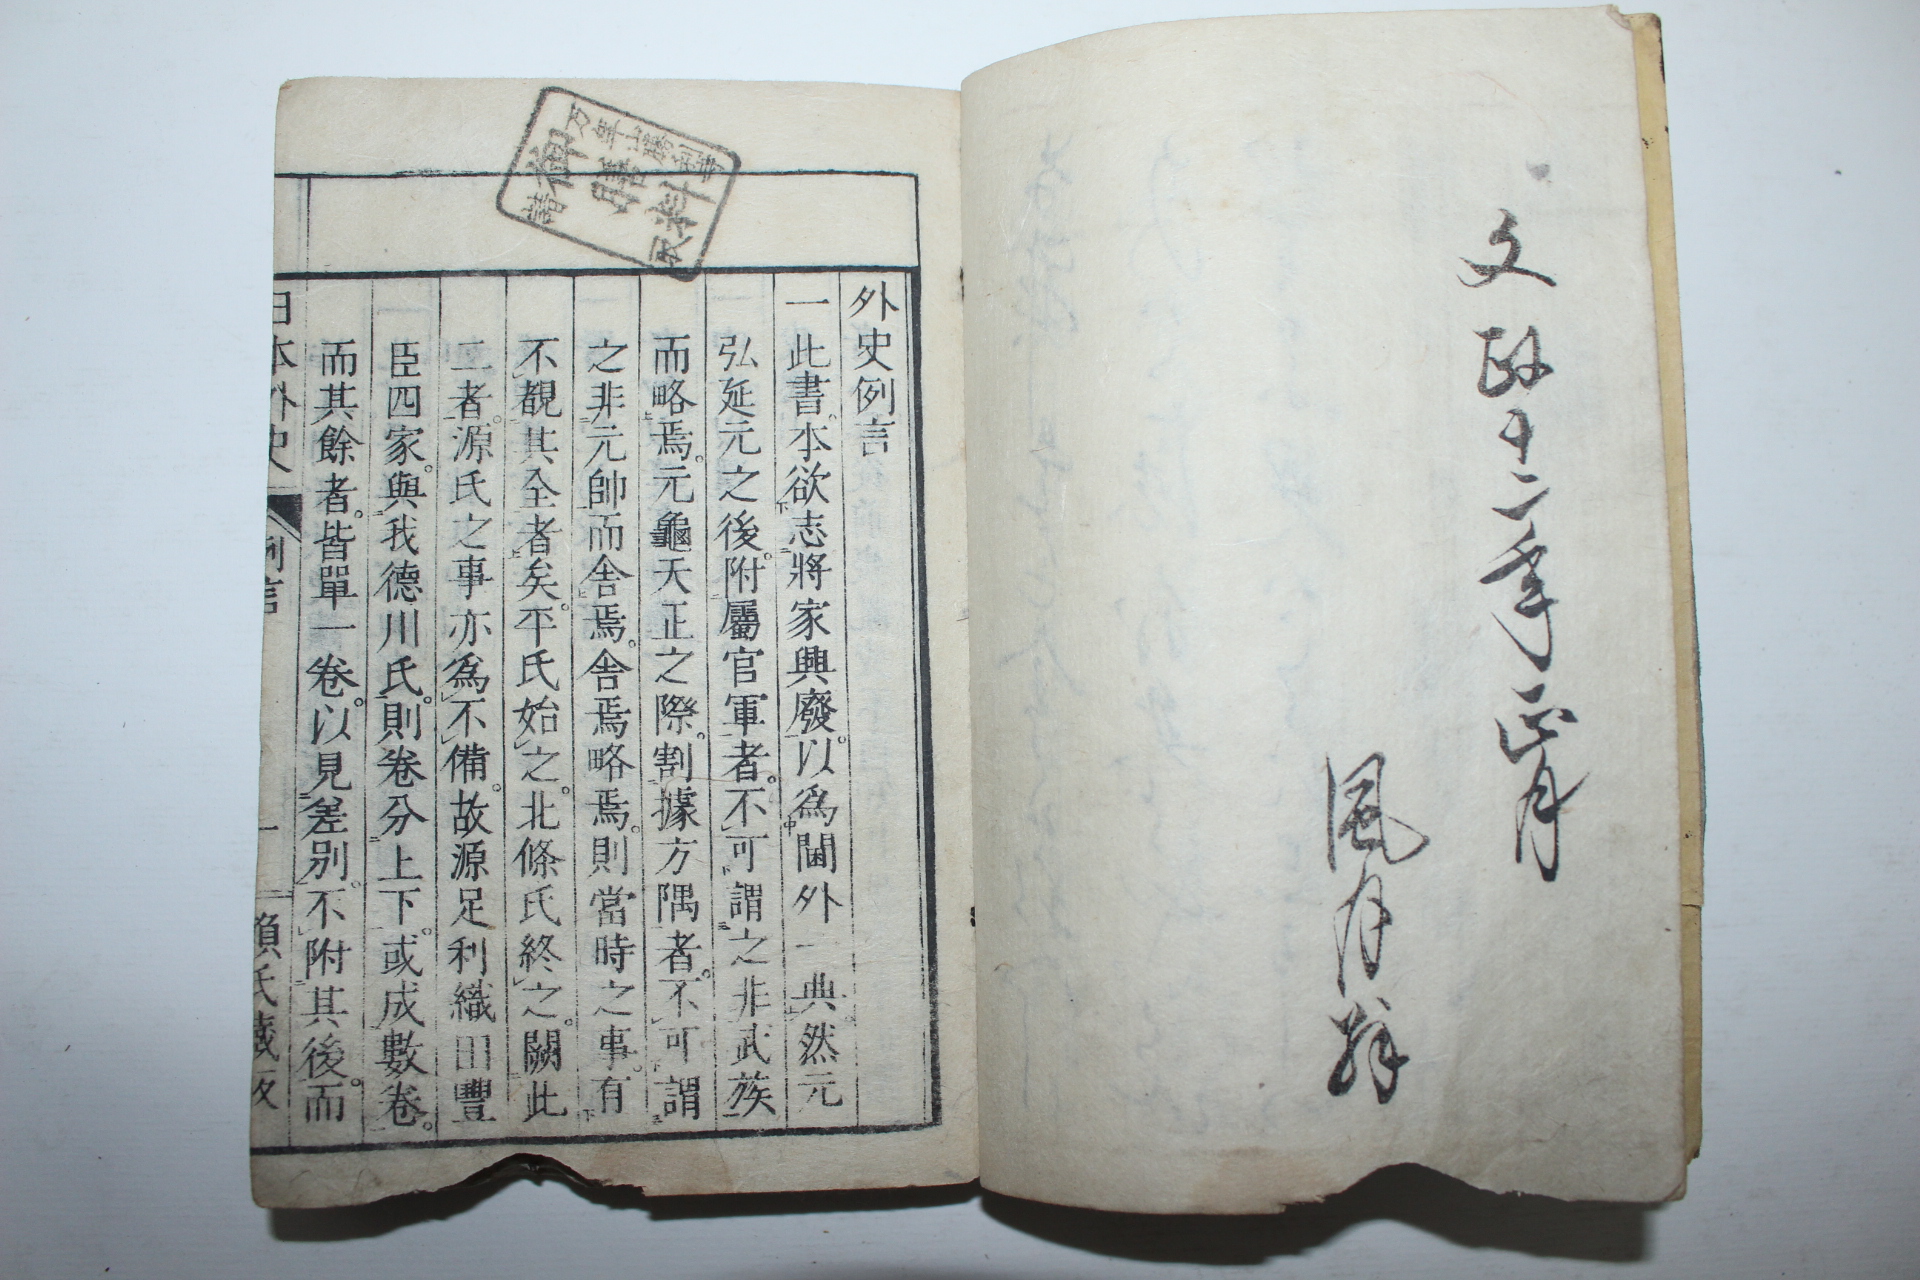 文政十二年正月
風月翁
万年山勝利寺
御膳料
外史例言
一此書。本欲志將家興廢。以爲閫外一典然元
弘延元之後。附屬官軍者。不可謂之非武族
而略焉。元龜天正之際。割據方隅者。不可謂
之非元帥而舍焉。舍焉略焉。則當時之事。有
不覩其全者矣。平氏始之。北條氏終之。闕此
二者。源氏之事亦爲不備。故源足利織田豐
臣四家。與我德川氏。則卷分上下。或成數卷。
而其餘者。皆單一卷。以見差別。不附其後。而
日本外史 例言 一 賴氏藏版